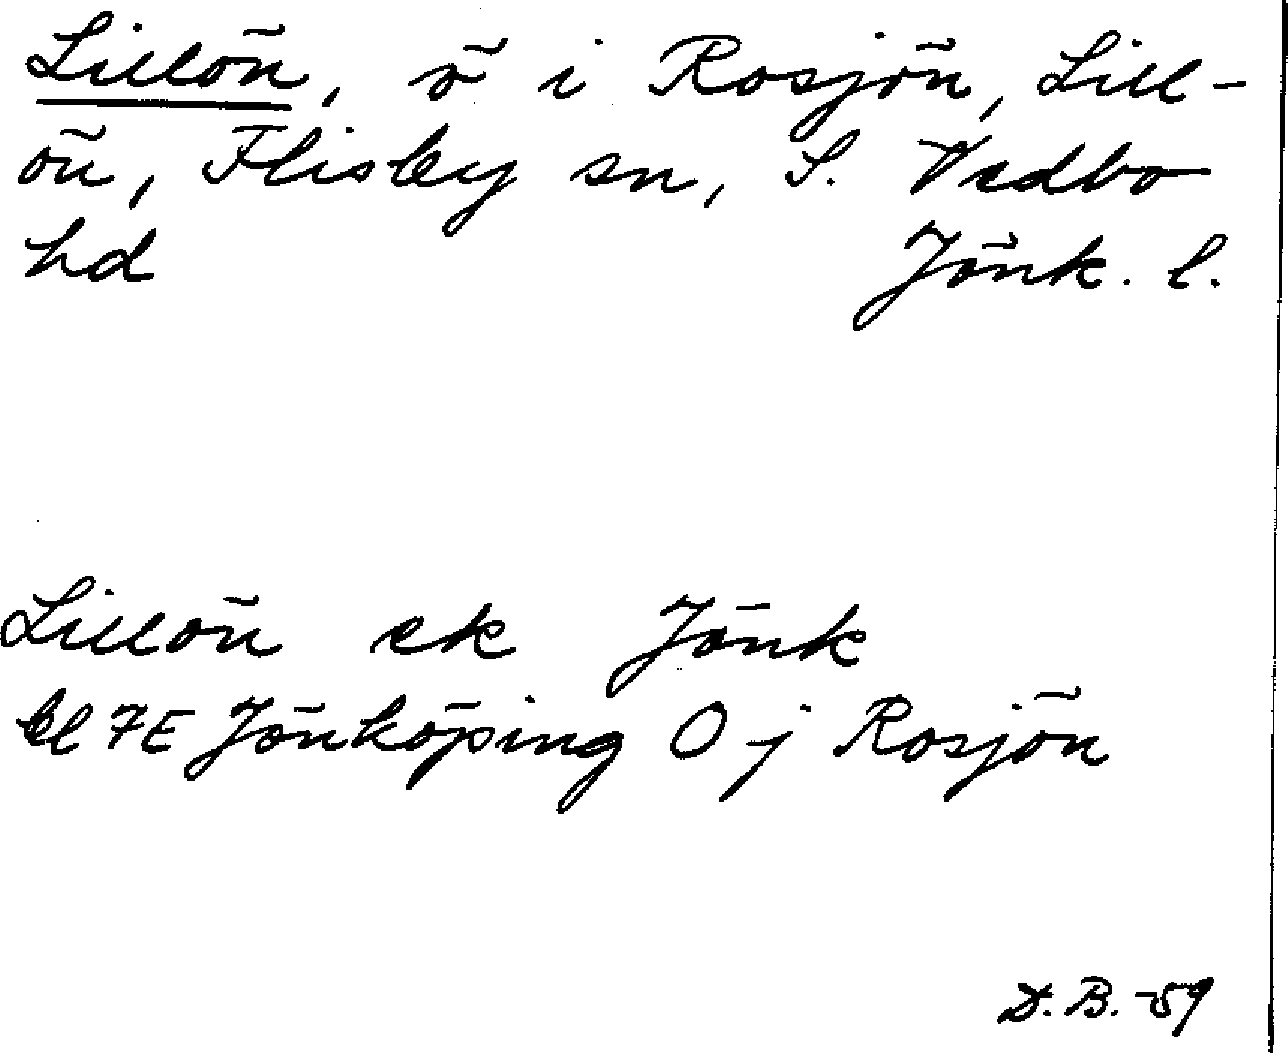 Lillön, ö i Rosjön, Lill-
ön, Flisby sn, S. Vedbo
hd Jönk. l.
Lillön ek Jönk
bl 7E Jönköping O j Rosjön
D.B. -59